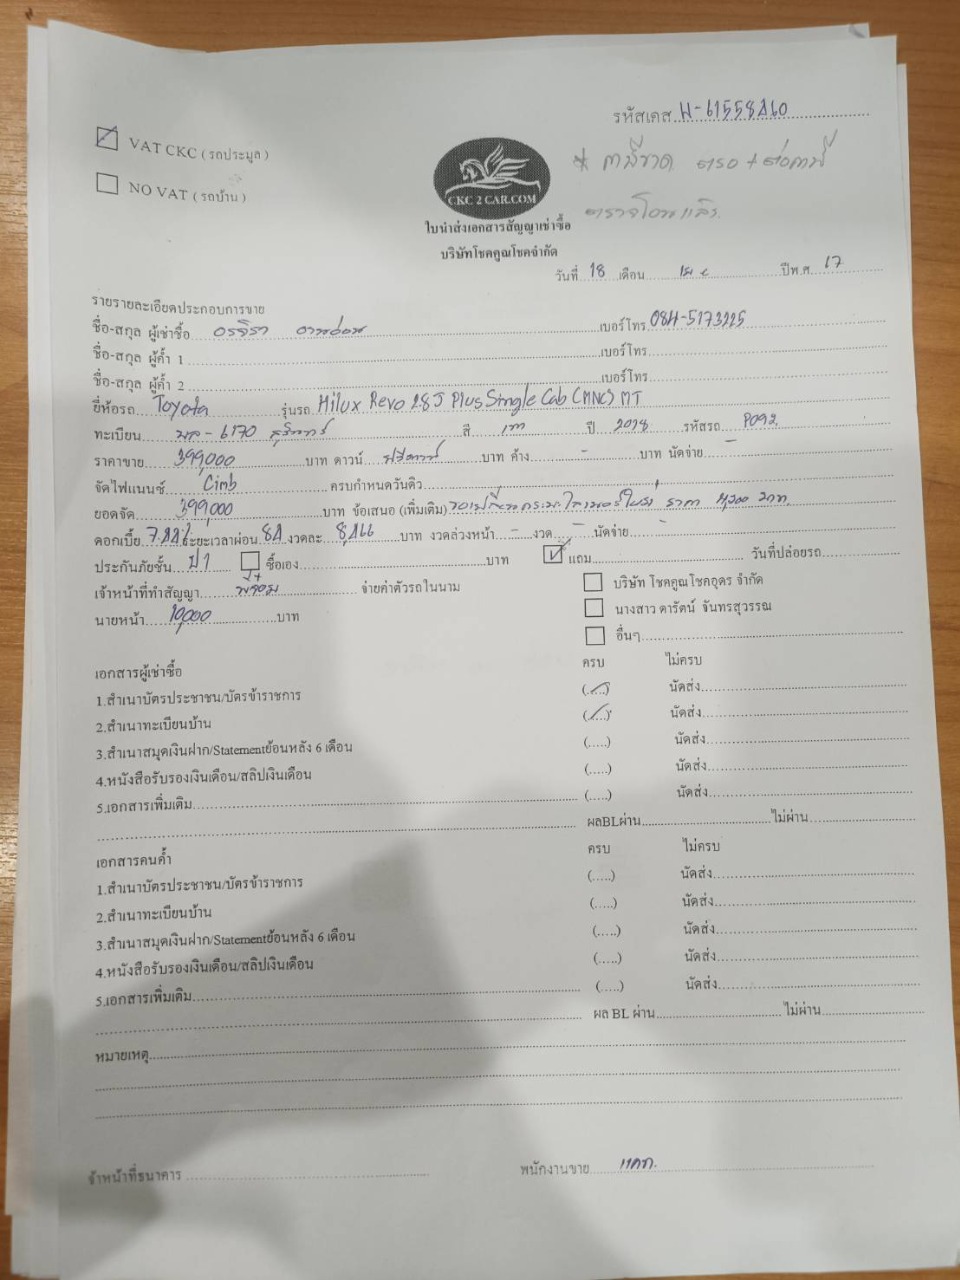 รหัสเคส
VAT CKC ( รถประมูล )
NO VAT ( รถบ้าน )
CKC 2 CAR.COM
ใบนำส่งเอกสารสัญญาเช่าซื้อ
บริษัทโชคคูณโชคจำกัด
วันที่ 18 เดือน ปีพ.ศ. 17
รายรายละเอียดประกอบการขาย
ชื่อ-สกุล ผู้เช่าซื้อ เบอร์โทร
ชื่อ-สกุล ผู้ค้ำ 1 เบอร์โทร
ชื่อ-สกุล ผู้ค้ำ 2 เบอร์โทร
ยี่ห้อรถ Toyota รุ่นรถ Hilux Revo 2.8 J Plus Single Cab (MNC) MT
ทะเบียน สี เทา ปี 2018 รหัสรถ P092
ราคาขาย 399,000 บาท ดาวน์ ฟรีดาวน์ บาท ค้าง - บาท นัดจ่าย -
จัดไฟแนนซ์ Cimb ครบกำหนดวันดิว
ยอดจัด 399,000 บาท ข้อเสนอ (เพิ่มเติม) ราคา บาท
ดอกเบี้ย ระยะเวลาผ่อน งวดละ บาท งวดล่วงหน้า - งวด - นัดจ่าย -
ประกันภัยชั้น ป1 ซื้อเอง บาท แถม วันที่ปล่อยรถ
เจ้าหน้าที่ทำสัญญา จ่ายค่าตัวรถในนาม บริษัท โชคคูณโชคอุดร จำกัด
นายหน้า 10,000 บาท นางสาว ดารัตน์ จันทรสุวรรณ
อื่นๆ
เอกสารผู้เช่าซื้อ ครบ ไม่ครบ
1.สำเนาบัตรประชาชน/บัตรข้าราชการ (../..) นัดส่ง
2.สำเนาทะเบียนบ้าน (../..) นัดส่ง
3.สำเนาสมุดเงินฝาก/Statementย้อนหลัง 6 เดือน (.....) นัดส่ง
4.หนังสือรับรองเงินเดือน/สลิปเงินเดือน (.....) นัดส่ง
5.เอกสารเพิ่มเติม (.....) นัดส่ง
ผลBLผ่าน ไม่ผ่าน
เอกสารคนค้ำ ครบ ไม่ครบ
1.สำเนาบัตรประชาชน/บัตรข้าราชการ (.....) นัดส่ง
2.สำเนาทะเบียนบ้าน (.....) นัดส่ง
3.สำเนาสมุดเงินฝาก/Statementย้อนหลัง 6 เดือน (.....) นัดส่ง
4.หนังสือรับรองเงินเดือน/สลิปเงินเดือน (.....) นัดส่ง
5.เอกสารเพิ่มเติม (.....) นัดส่ง
ผล BL ผ่าน ไม่ผ่าน
หมายเหตุ
จ้าหน้าที่ธนาคาร พนักงานขาย